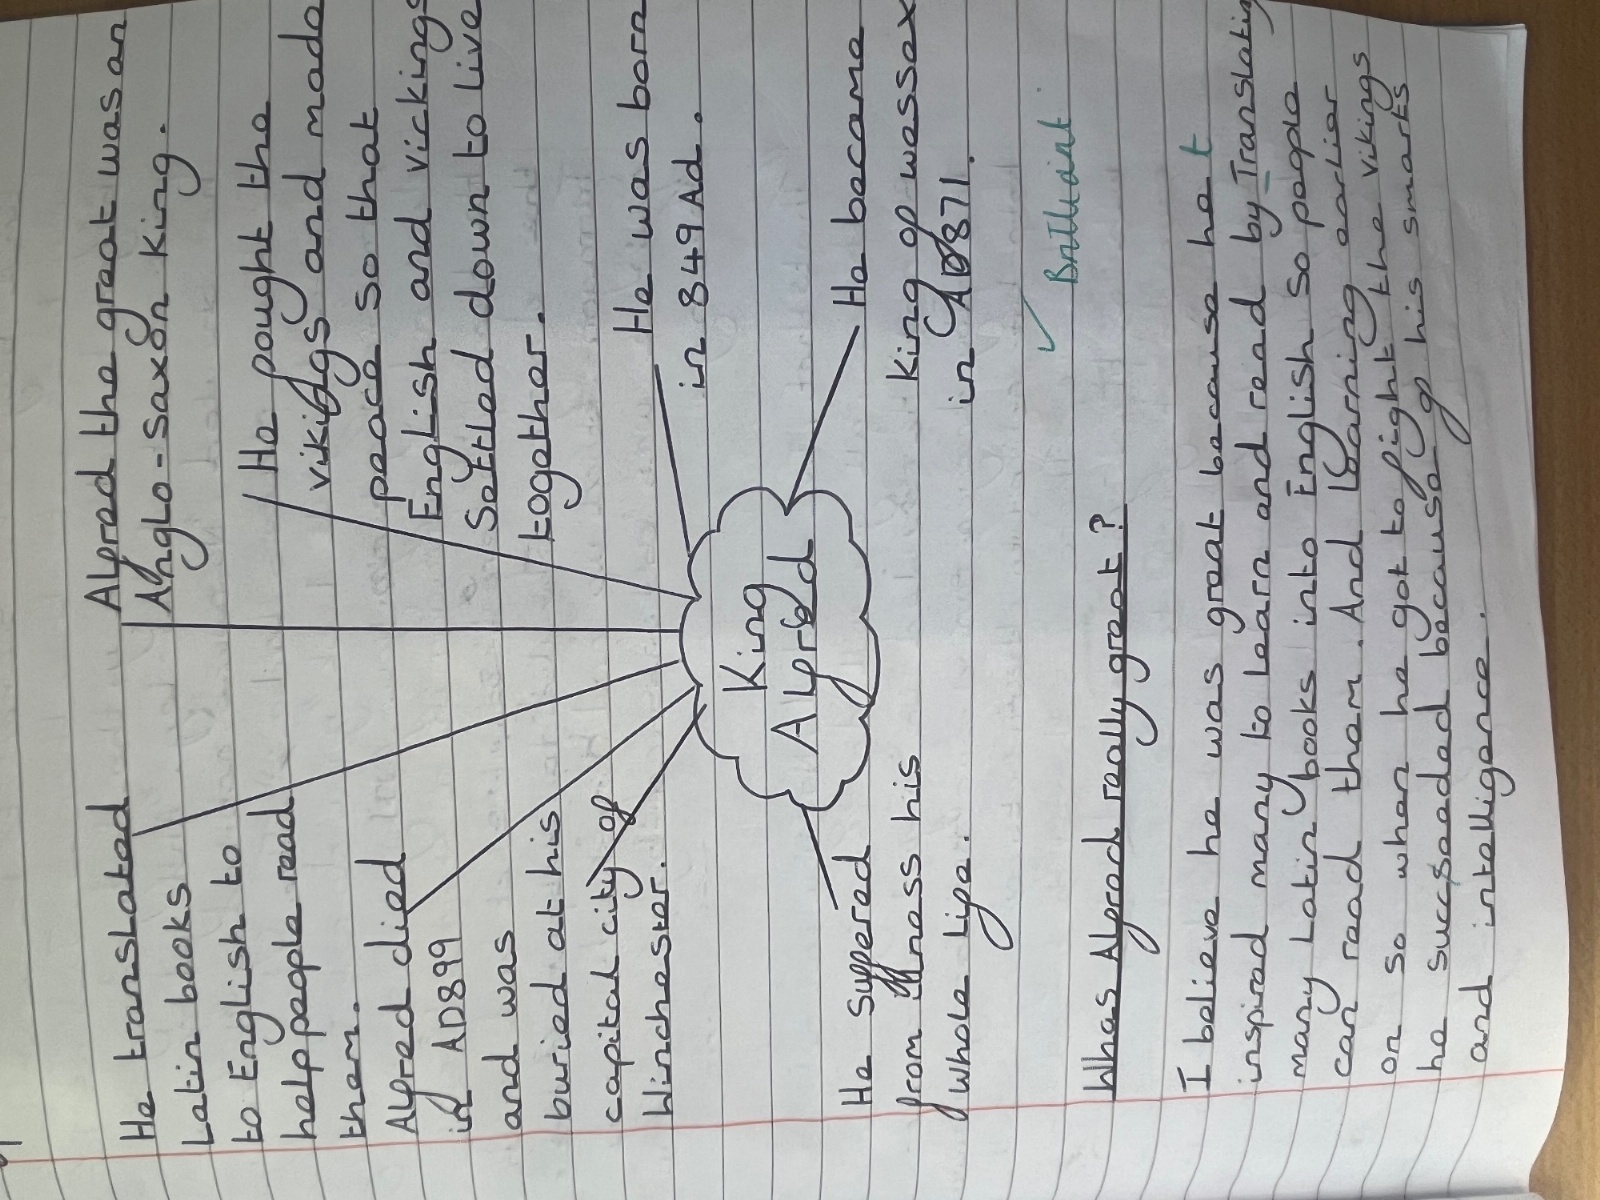 He translated
Latin books
to English to
help people read
them.
Alfred died
in AD899
and was
buried at his
capital city of
Winchester.
Alfred the great was an
Anglo-Saxon King.
He fought the
vikidgs and made
peace so that
English and vickings
Settled down to live
together.
He was born
in 849 Ad.
King
Alfred
He suffered
from illness his
whole life.
He became
King of wessex
in AD871.
✓ Brilliant
Whas Alfred really great?
I believe he was great because he t
inspired many to learn and read by Translating
many Latin books into English so people
can read them. And learning earlier
on so when he got to fight the vikings
he sucsseeded because of his smarts
and intelligence.